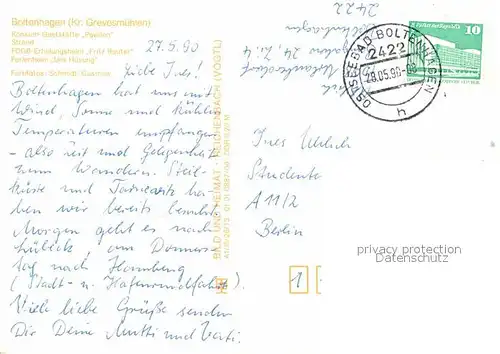 Boltenhagen (Kr. Grevesmühlen)
Konsum-Gaststätte „Pavillon"
Strand
FDGB-Erholungsheim „Fritz Reuter"
Ferienheim
27.5.90
Liebe Ines!
Boltenhagen hat uns mit
Wind, Sonne und kühlen
Temperaturen empfangen
- also Zeit und Gelegenheit
zum Wandern. Steil-
küste und Tarnewitz ha-
ben wir bereits besucht.
Morgen geht es nach
Lübeck am Donners-
tag nach Hamburg
(Stadt- u. Hafenrundfahrt).
Viele liebe Grüße senden
Dir Deine Mutti und Vati.
BILD UND HEIMAT REICHENBACH (VOGTL)
2422
OSTSEEBAD BOLTENHAGEN
2422
28.05.90
h
10
Ines
Studente
A 11/2
Berlin
privacy protection
Datenschutz
1